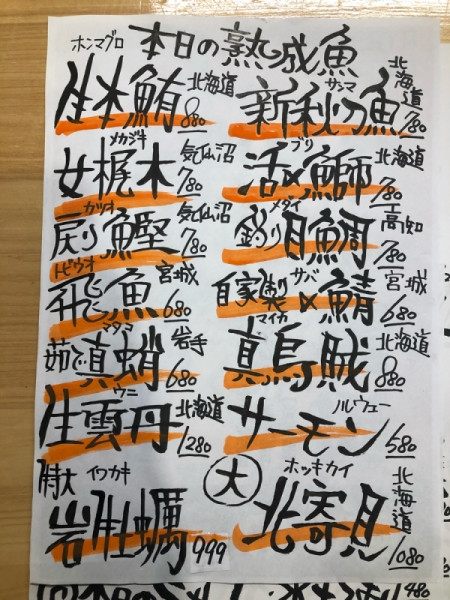 本日の熟成魚
ホンマグロ
生本鮪 北海道 880
サンマ
新秋刀魚 北海道 780
メカジキ
女梶木 気仙沼 780
ブリ
活〆鰤 北海道 780
カツオ
戻り鰹 気仙沼 780
メダイ
釣り目鯛 高知 780
トビウオ
飛魚 宮城 680
サバ
自家製〆鯖 宮城 680
マダコ
茹で真蛸 岩手 680
マイカ
真烏賊 北海道 880
ウニ
生雲丹 北海道 1280
サーモン ノルウェー 580
特大 イワガキ
岩牡蠣 999
大 ホッキカイ
北寄貝 北海道 1080
480